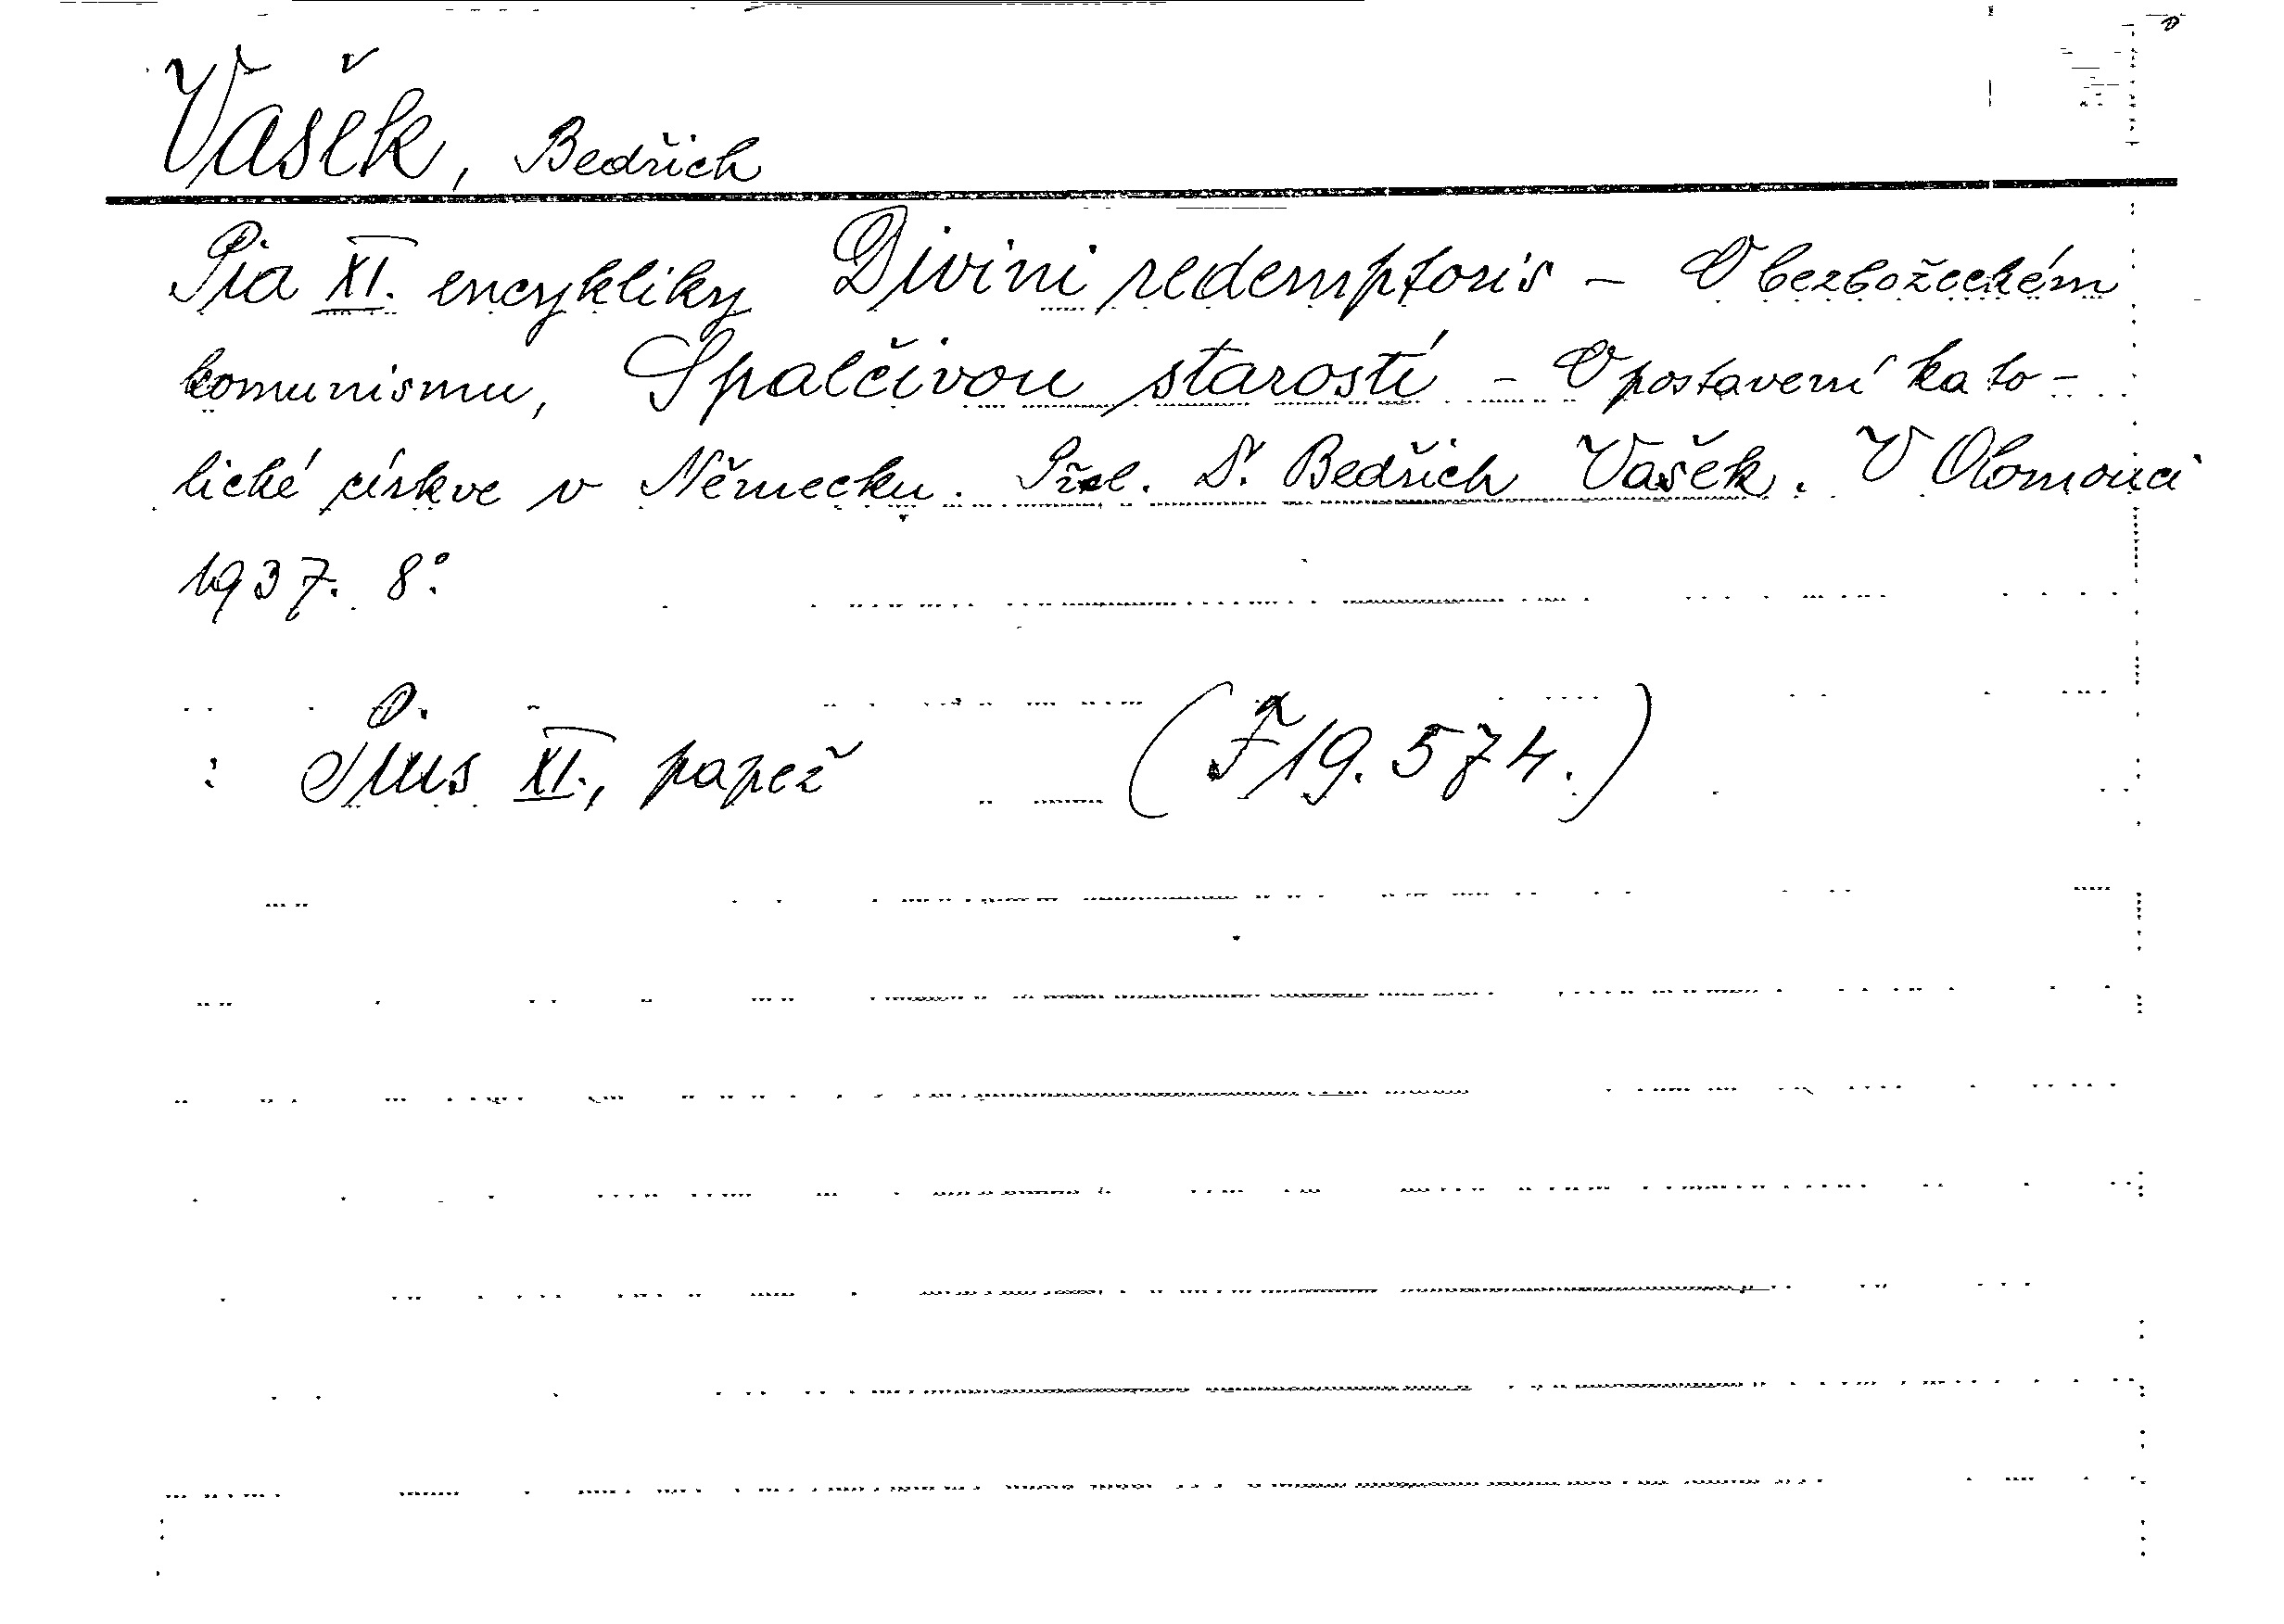 Vašek, Bedřich
Pia XI. encykliky Divini redemptoris - O bezbožeckém
komunismu, Spalčivou starostí - O postavení kato-
lické církve v Německu. Přel. Dr. Bedřich Vašek. V Olomouci
1937. 8°.
: Pius XI., papež (F 19.574.)